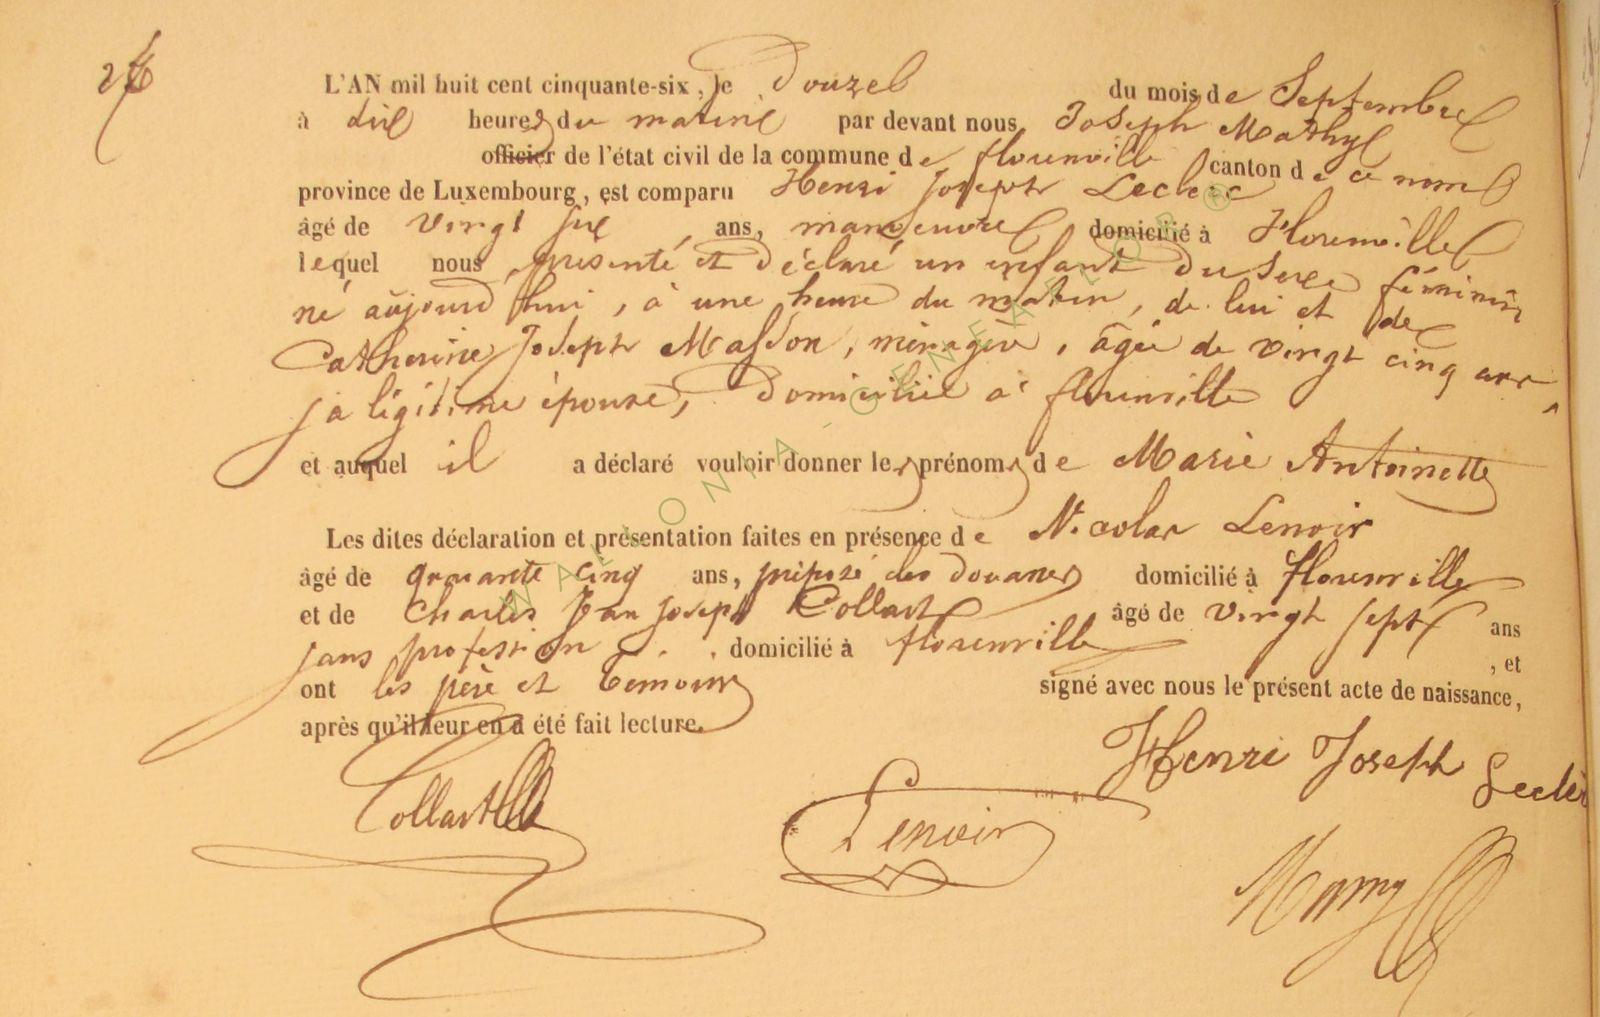 L'AN mil huit cent cinquante-six, le Douze du mois de Septembre
à dix heures du matin par devant nous Joseph Mathy
officier de l'état civil de la commune de florenville canton de ce nom
province de Luxembourg, est comparu Henri Joseph Leclerc
âgé de vingt six ans, manœuvre domicilié à Florenville
lequel nous présenté et déclaré un enfant du sexe féminin
né aujourd'hui, à une heure du matin, de lui et de
Catherine Joseph Masson, ménagère, âgée de vingt cinq ans,
sa légitime épouse, domiciliée à florenville
et auquel il a déclaré vouloir donner les prénoms de Marie Antoinette
Les dites déclaration et présentation faites en présence de Nicolas Lenoir
âgé de quarante cinq ans, préposé des douanes domicilié à florenville
et de Charles Jean Joseph Collart âgé de vingt sept ans
sans profession domicilié à florenville , et
ont les père et témoins signé avec nous le présent acte de naissance,
après qu'il leur en a été fait lecture.
Henri Joseph Leclér
Collart
Lenoir
WALLONIA - GENEAFLOR ®